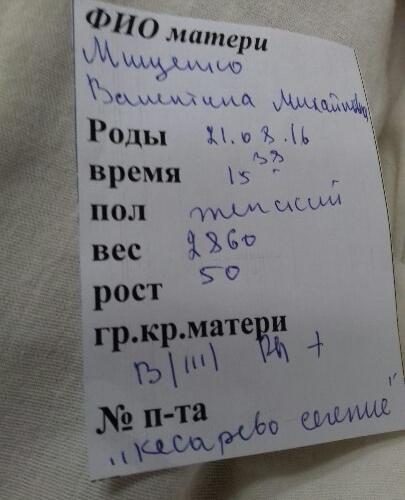 ФИО матери
Мищенко
Валентина Михайловна
Роды 21.08.16
время 15 38
пол женский
вес 2860
рост 50
гр.кр.матери
B/III/ Rh +
№ п-та
"кесарево сечение"